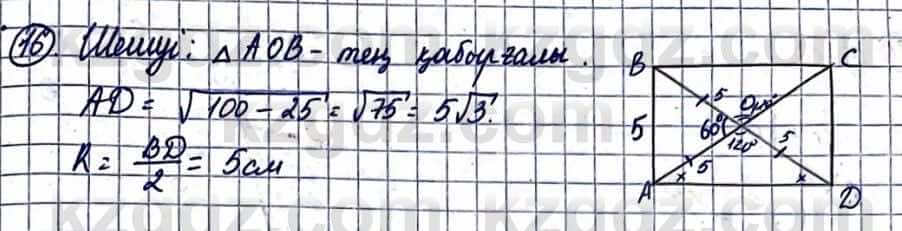 16. Шешуі: △ AOB - тең қабырғалы.
AD = √100 - 25 = √75 = 5√3.
R = BD/2 = 5см
B C
5 O
5 60° 5
120°
5
A D
kzgdz.com